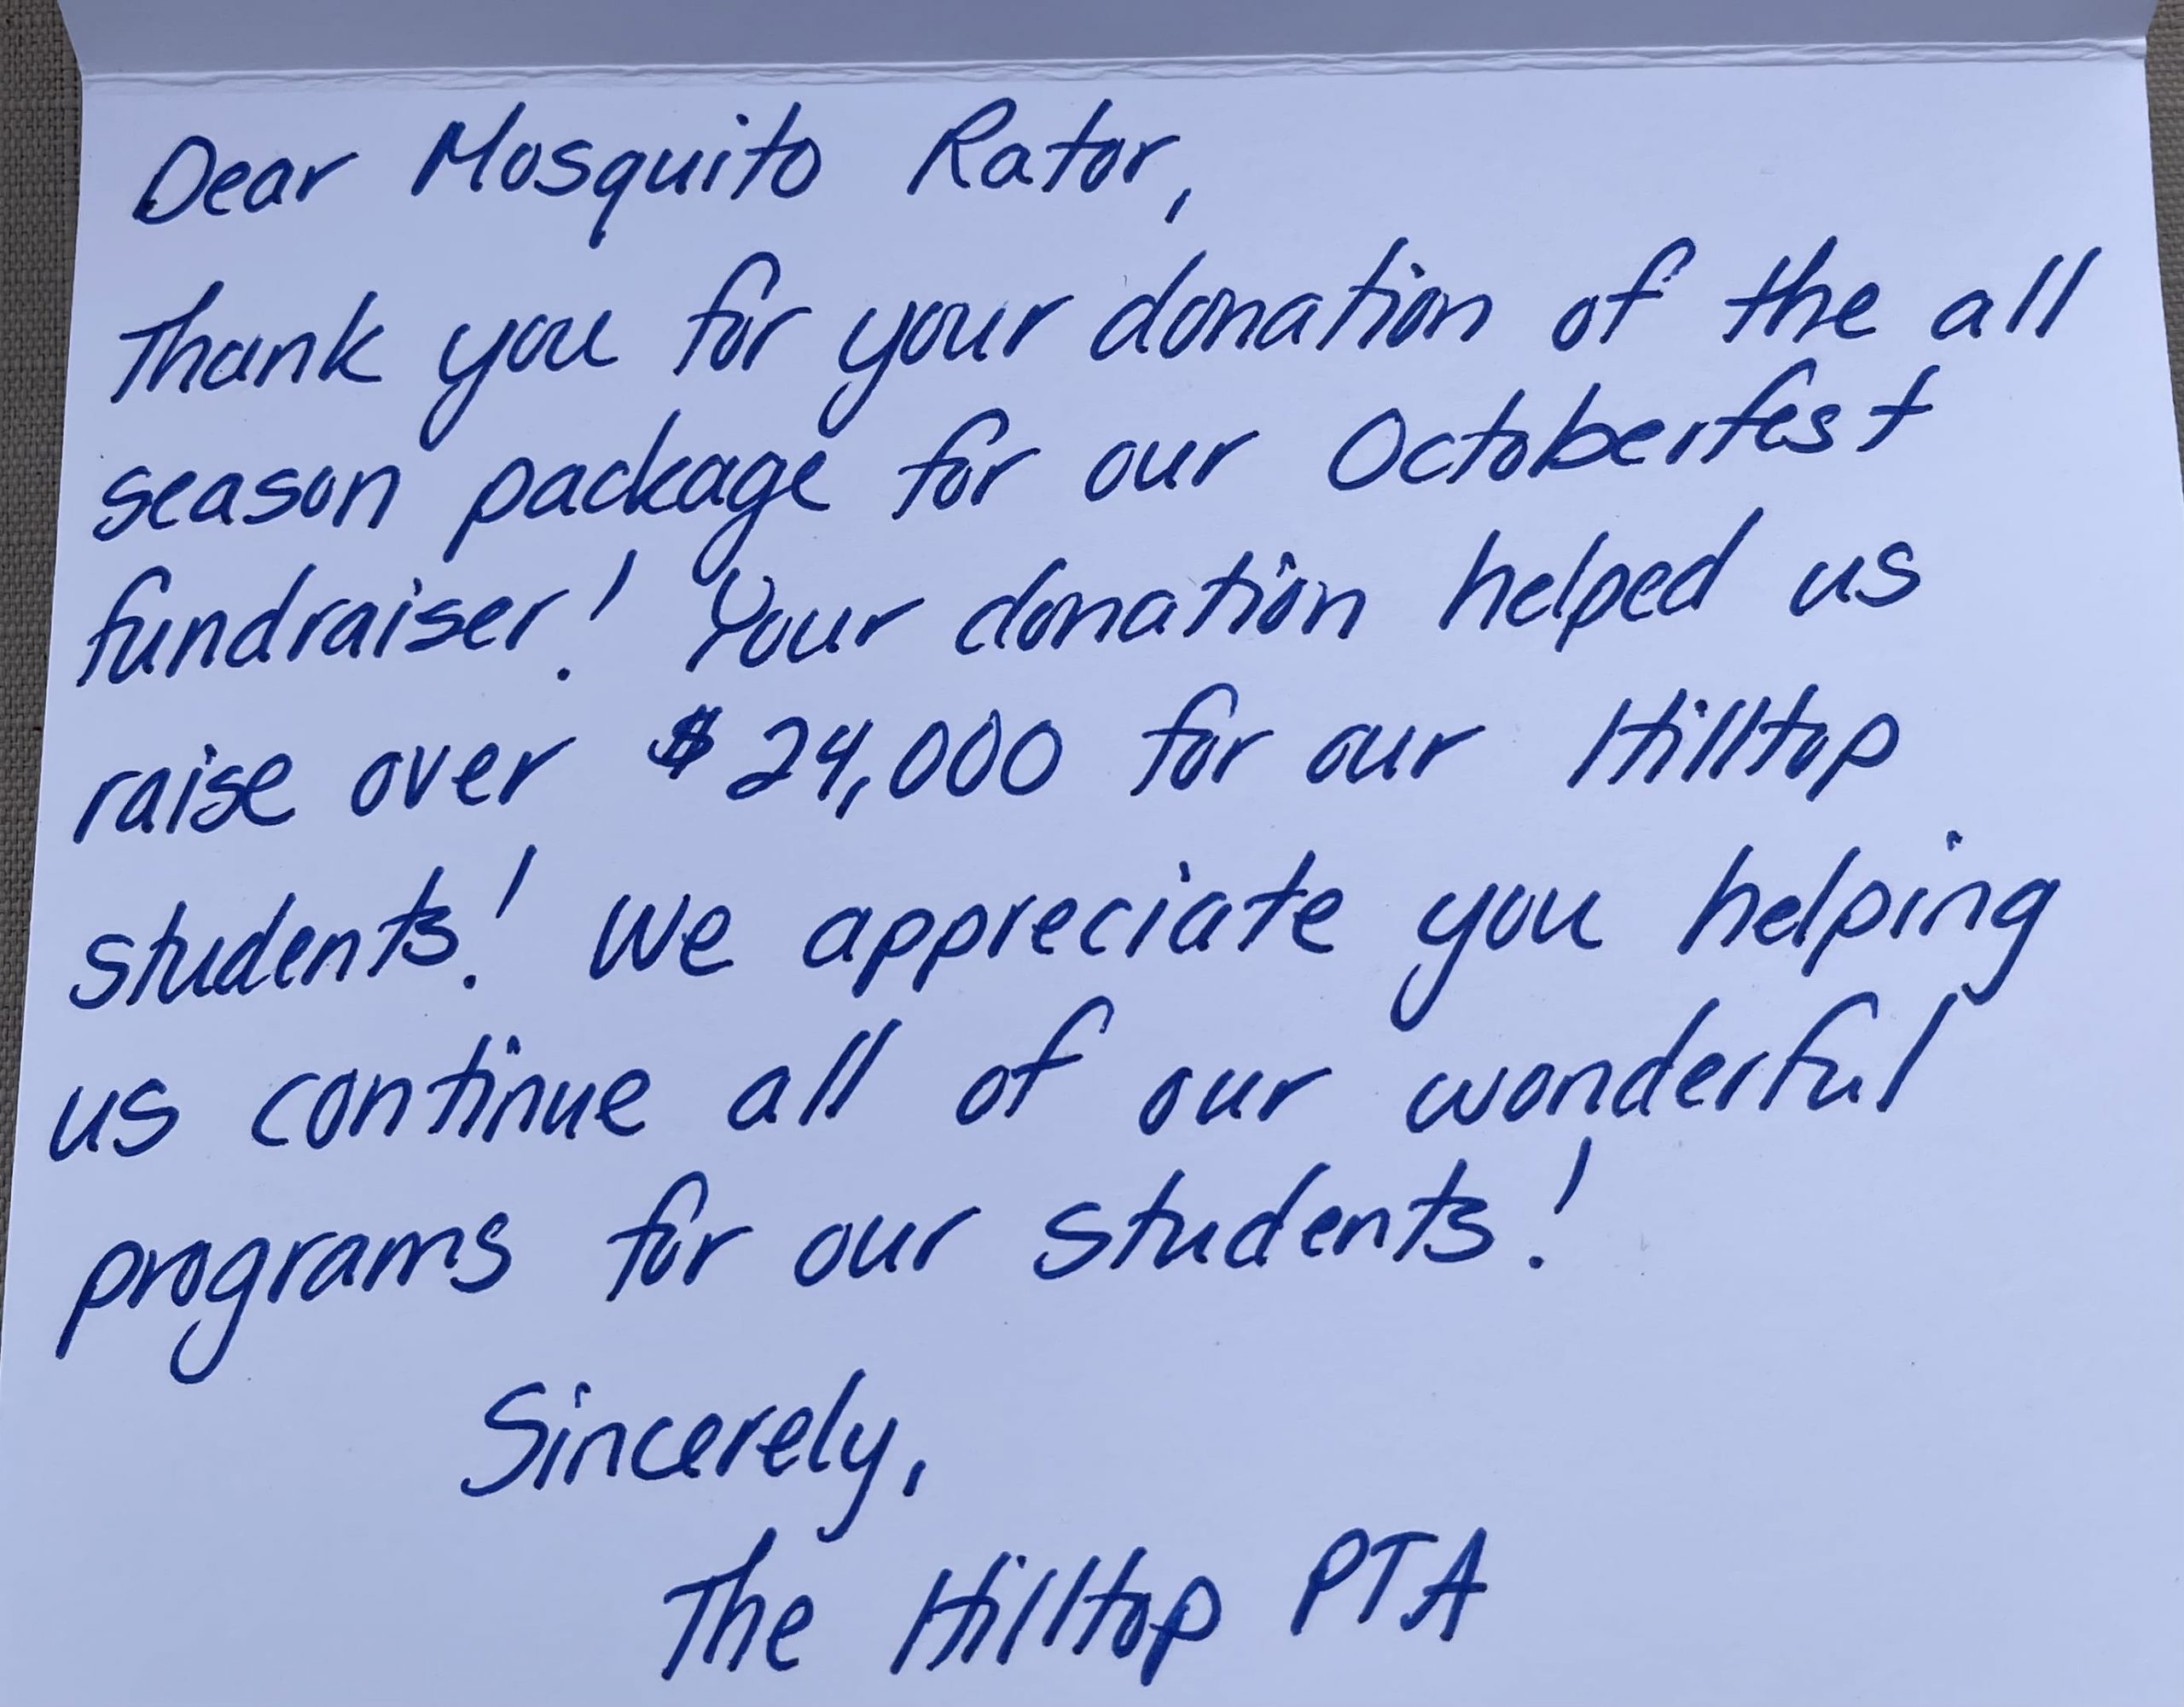 Dear Mosquito Rator,
Thank you for your donation of the all
season package for our Octoberfest
fundraiser! Your donation helped us
raise over $24,000 for our Hilltop
students! We appreciate you helping
us continue all of our wonderful
programs for our students!
Sincerely,
The Hilltop PTA